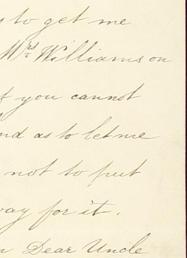 s to get me
Mrs Williams on
f you cannot
nd as to let me
not to put
way for it.
Dear Uncle